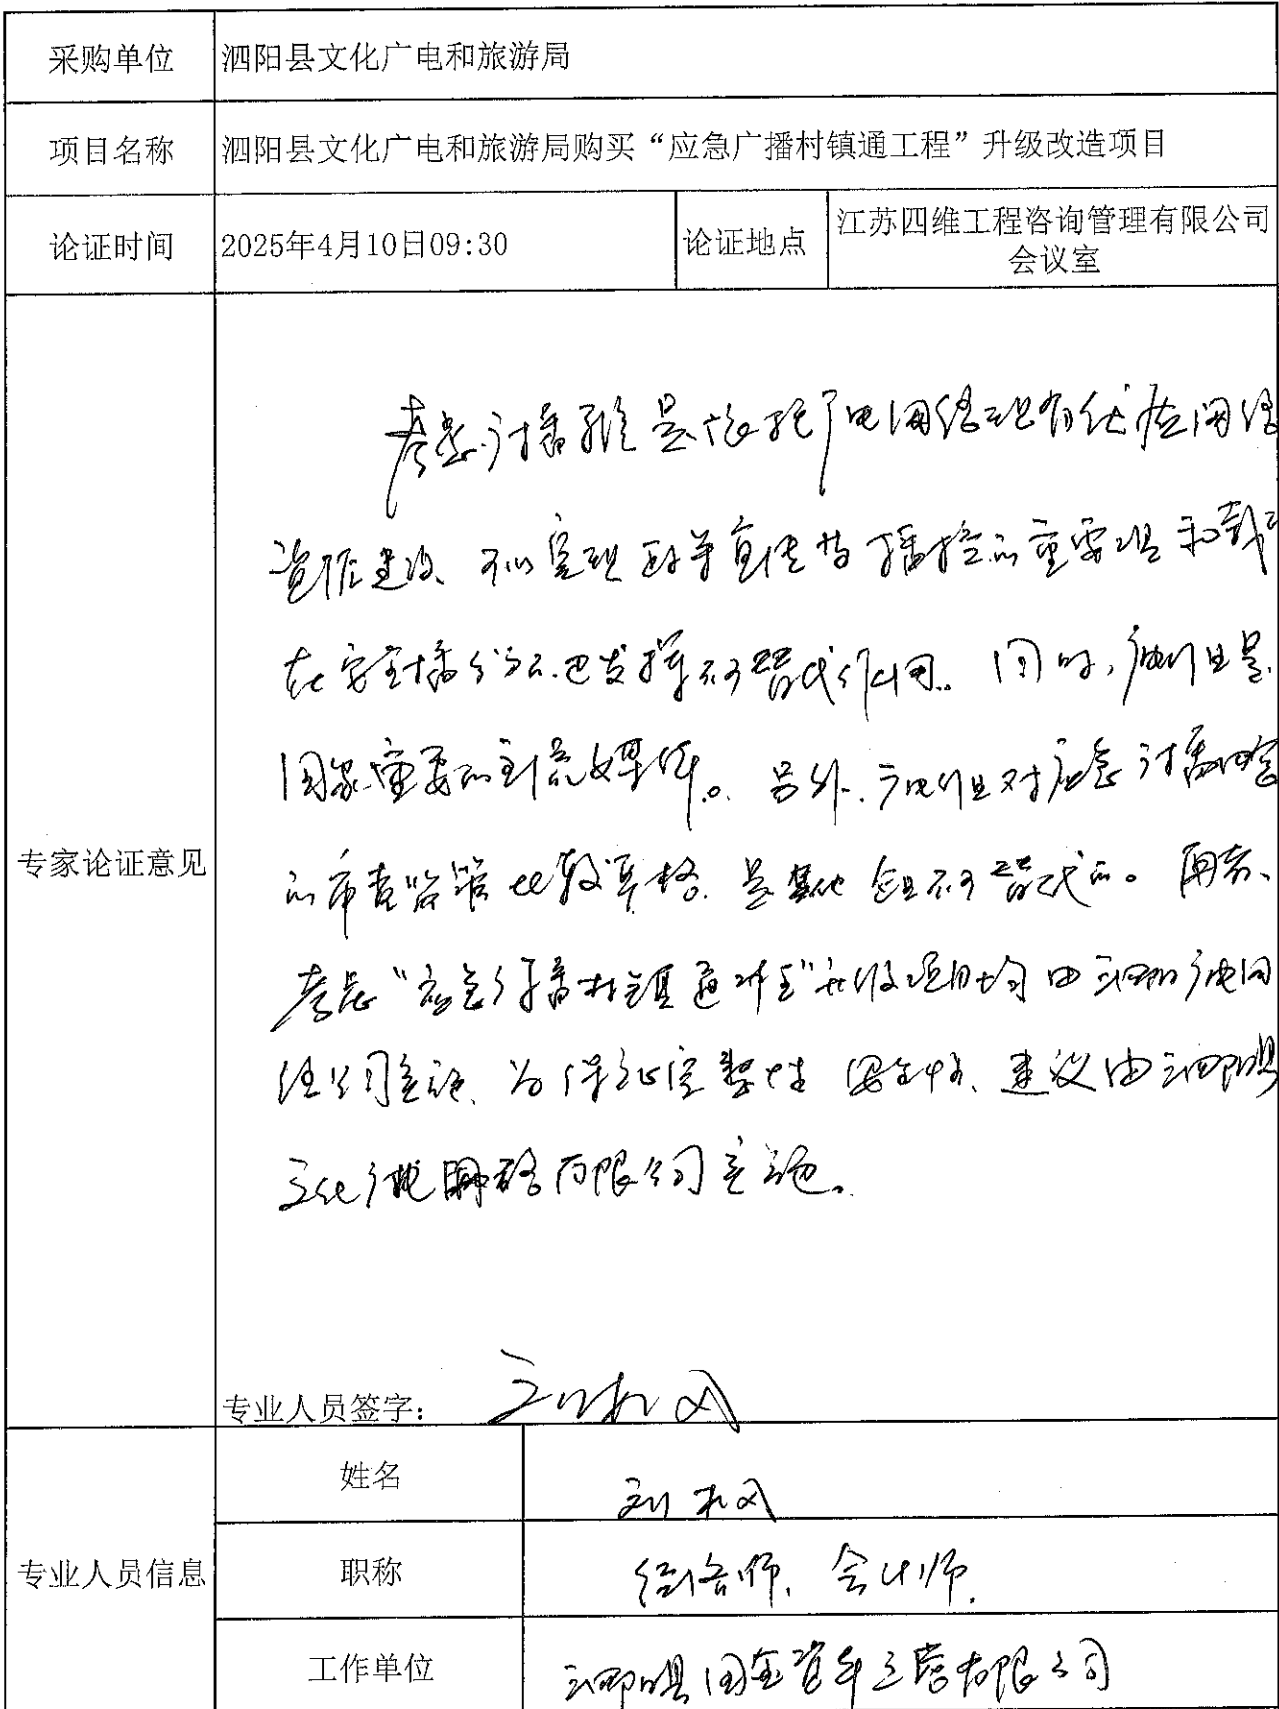 采购单位 泗阳县文化广电和旅游局
项目名称 泗阳县文化广电和旅游局购买“应急广播村镇通工程”升级改造项目
论证时间 2025年4月10日09:30 论证地点 江苏四维工程咨询管理有限公司会议室
专家论证意见
广播 是依托广电网络现有 网络
资源建设、 实现 宣传 播控的重要 和载
在安全播 已发挥不可替代作用。同时,广电 且是
国家重要的主流媒体。另外,广电 且对应急广播内容
的审查监管比较严格,是其他 不可替代的。再者、
考虑“应急广播村镇通工程”升级项目均由泗阳广电网
络公司实施、为保证完整性 安全性、建议由泗阳县
文化广电网络有限公司实施。
专业人员签字:
专业人员信息
姓名 刘
职称 经济师、会计师
工作单位 泗阳县国金资产运营有限公司